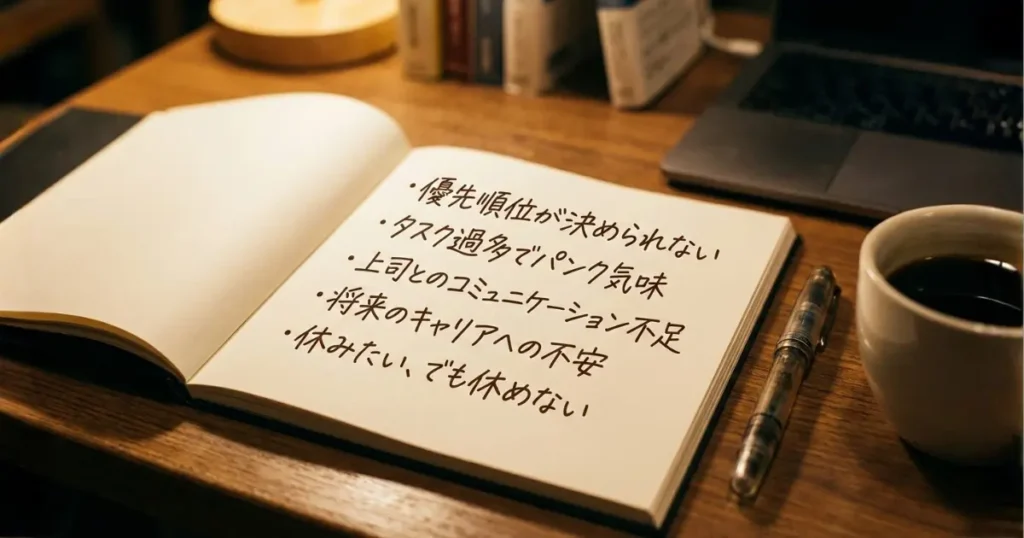 ・優先順位が決められない
・タスク過多でパンク気味
・上司とのコミュニケーション不足
・将来のキャリアへの不安
・休みたい、でも休めない